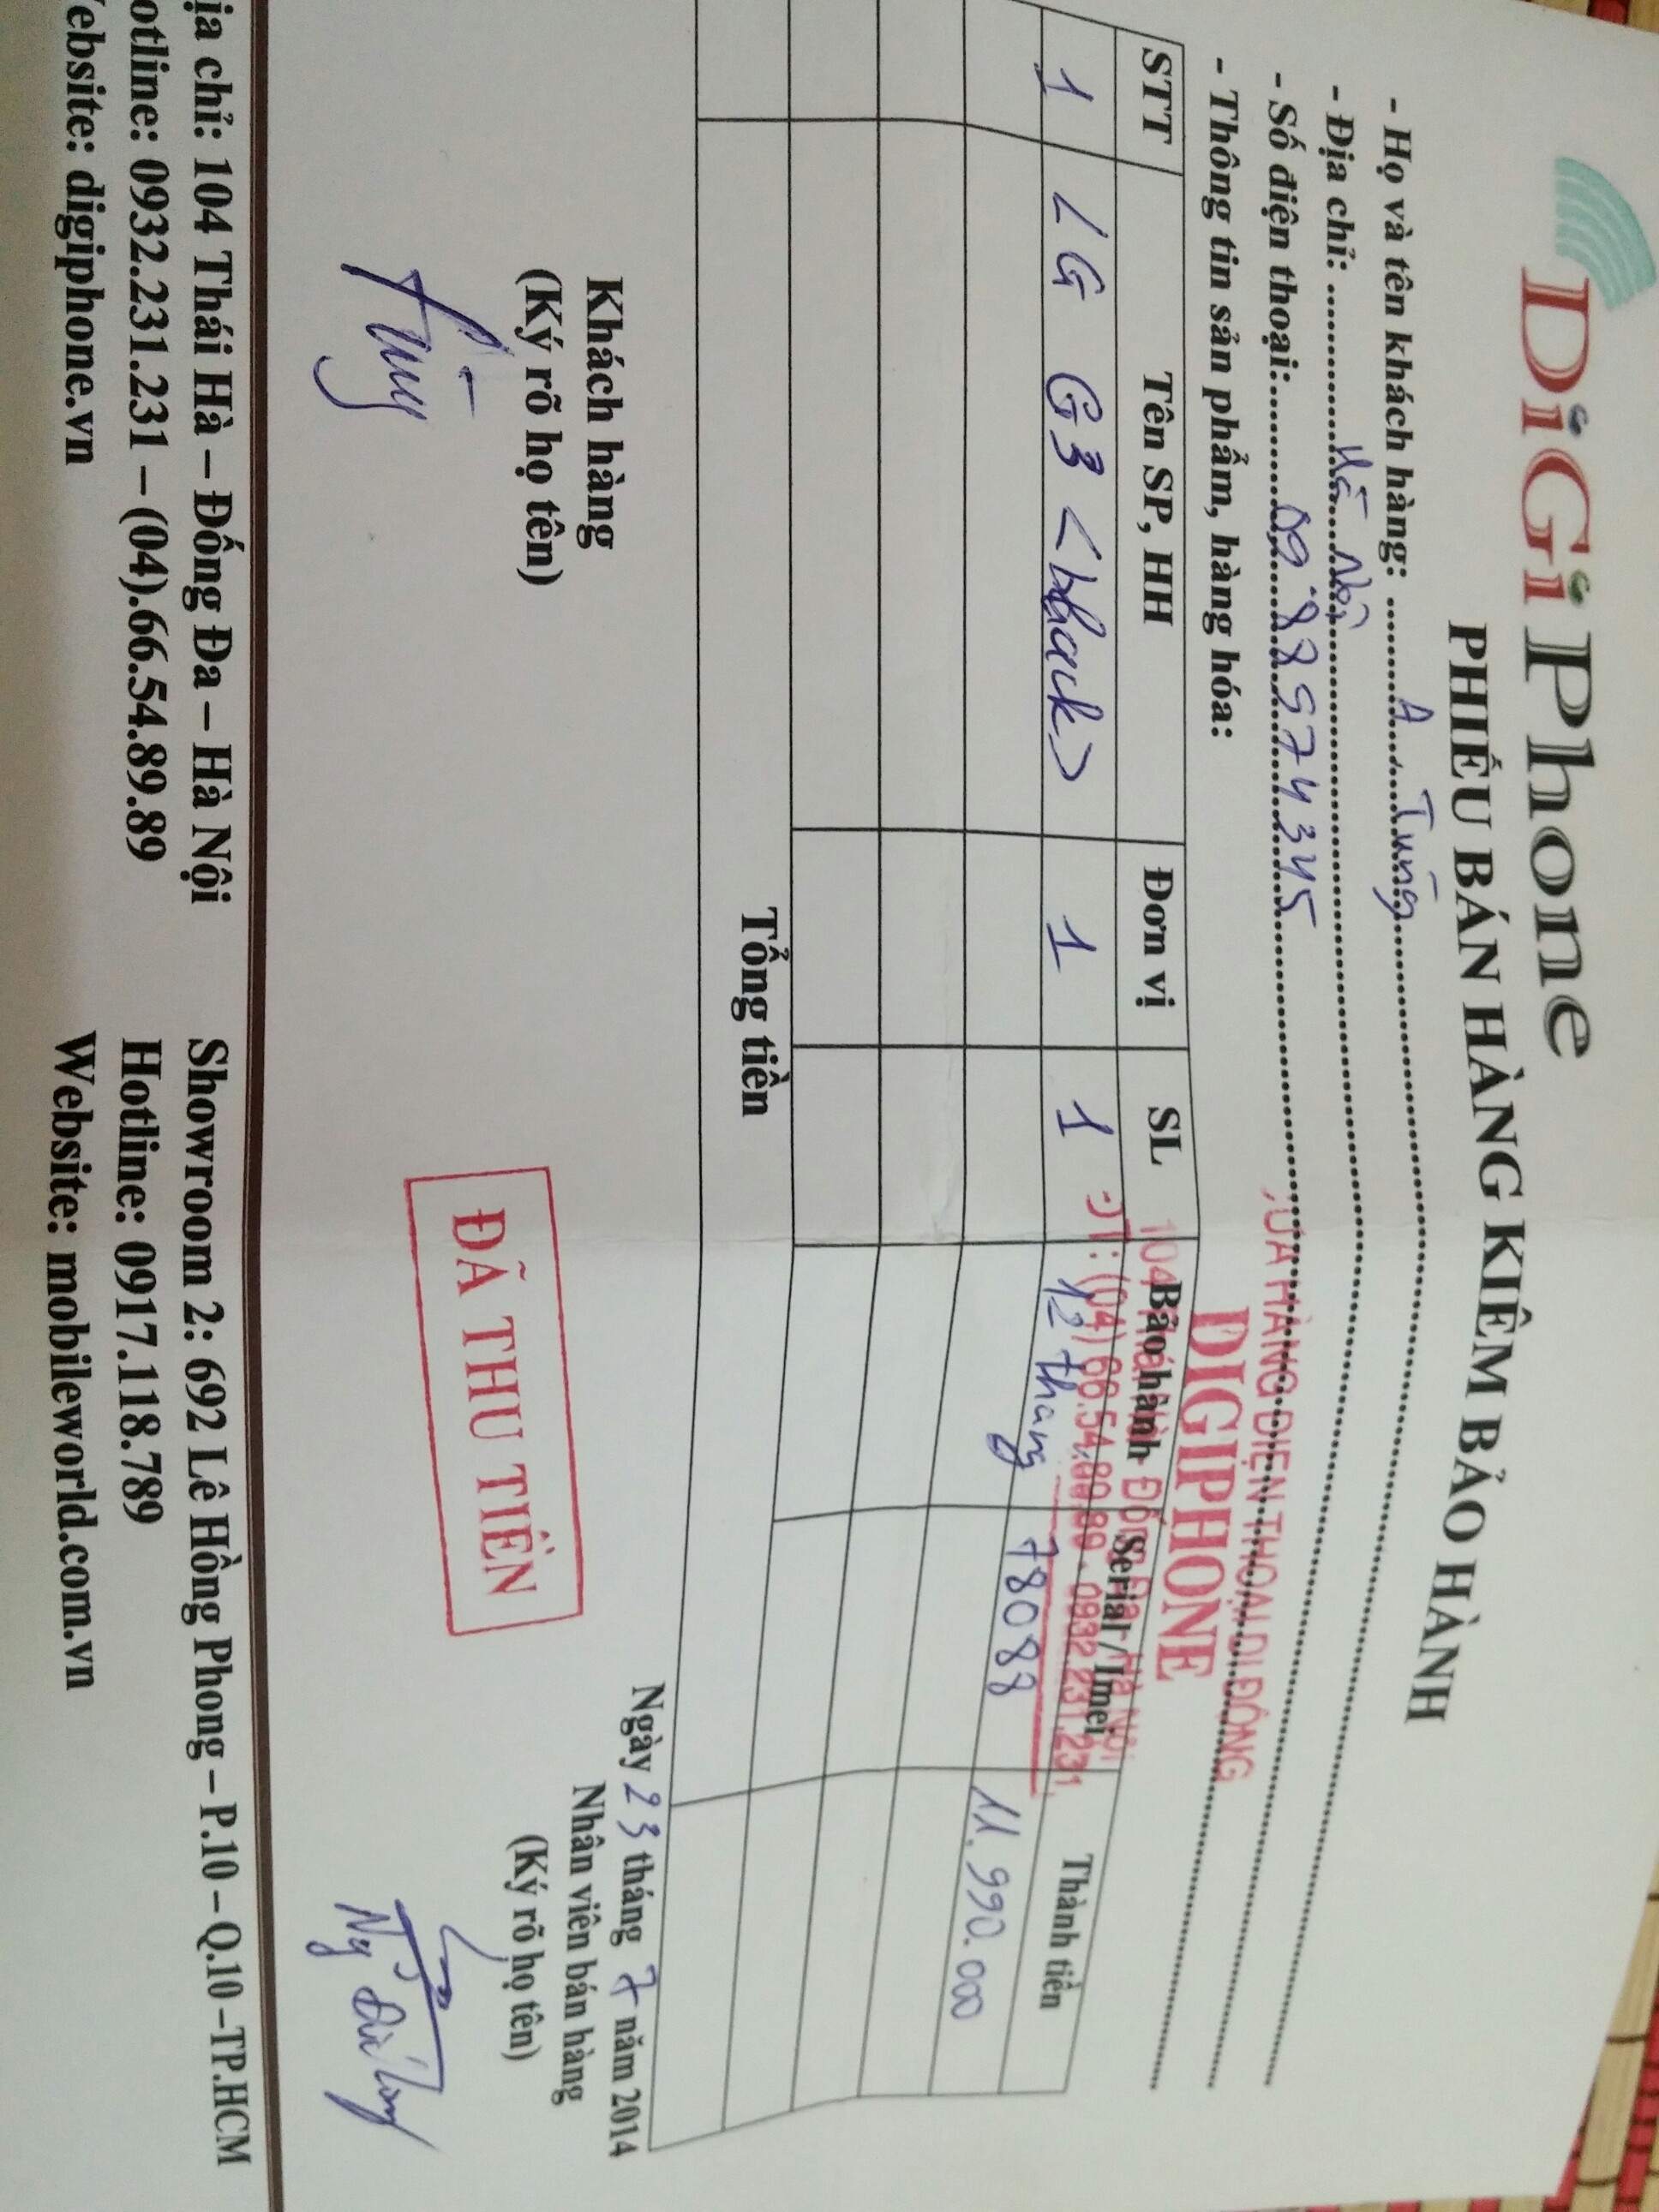 DiGiPhone
PHIẾU BÁN HÀNG KIÊM BẢO HÀNH
- Họ và tên khách hàng: A Tùng
- Địa chỉ: Hà Nội
- Số điện thoại: 09.88574345
- Thông tin sản phẩm, hàng hóa:
CỬA HÀNG ĐIỆN THOẠI DI ĐỘNG
DIGIPHONE
104 Thái Hà - Đống Đa - Hà Nội
ĐT: (04) 66.54.89.89 - 0932.231.231
STT Tên SP, HH Đơn vị SL Bảo hành Serial / Imei Thành tiền
1 LG G3 <black> 1 1 12 thang 78088 11.990.000
Tổng tiền
Ngày 23 tháng 7 năm 2014
Khách hàng Nhân viên bán hàng
(Ký rõ họ tên) (Ký rõ họ tên)
ĐÃ THU TIỀN
ịa chỉ: 104 Thái Hà – Đống Đa – Hà Nội Showroom 2: 692 Lê Hồng Phong – P.10 – Q.10 –TP.HCM
otline: 0932.231.231 – (04).66.54.89.89 Hotline: 0917.118.789
ebsite: digiphone.vn Website: mobileworld.com.vn